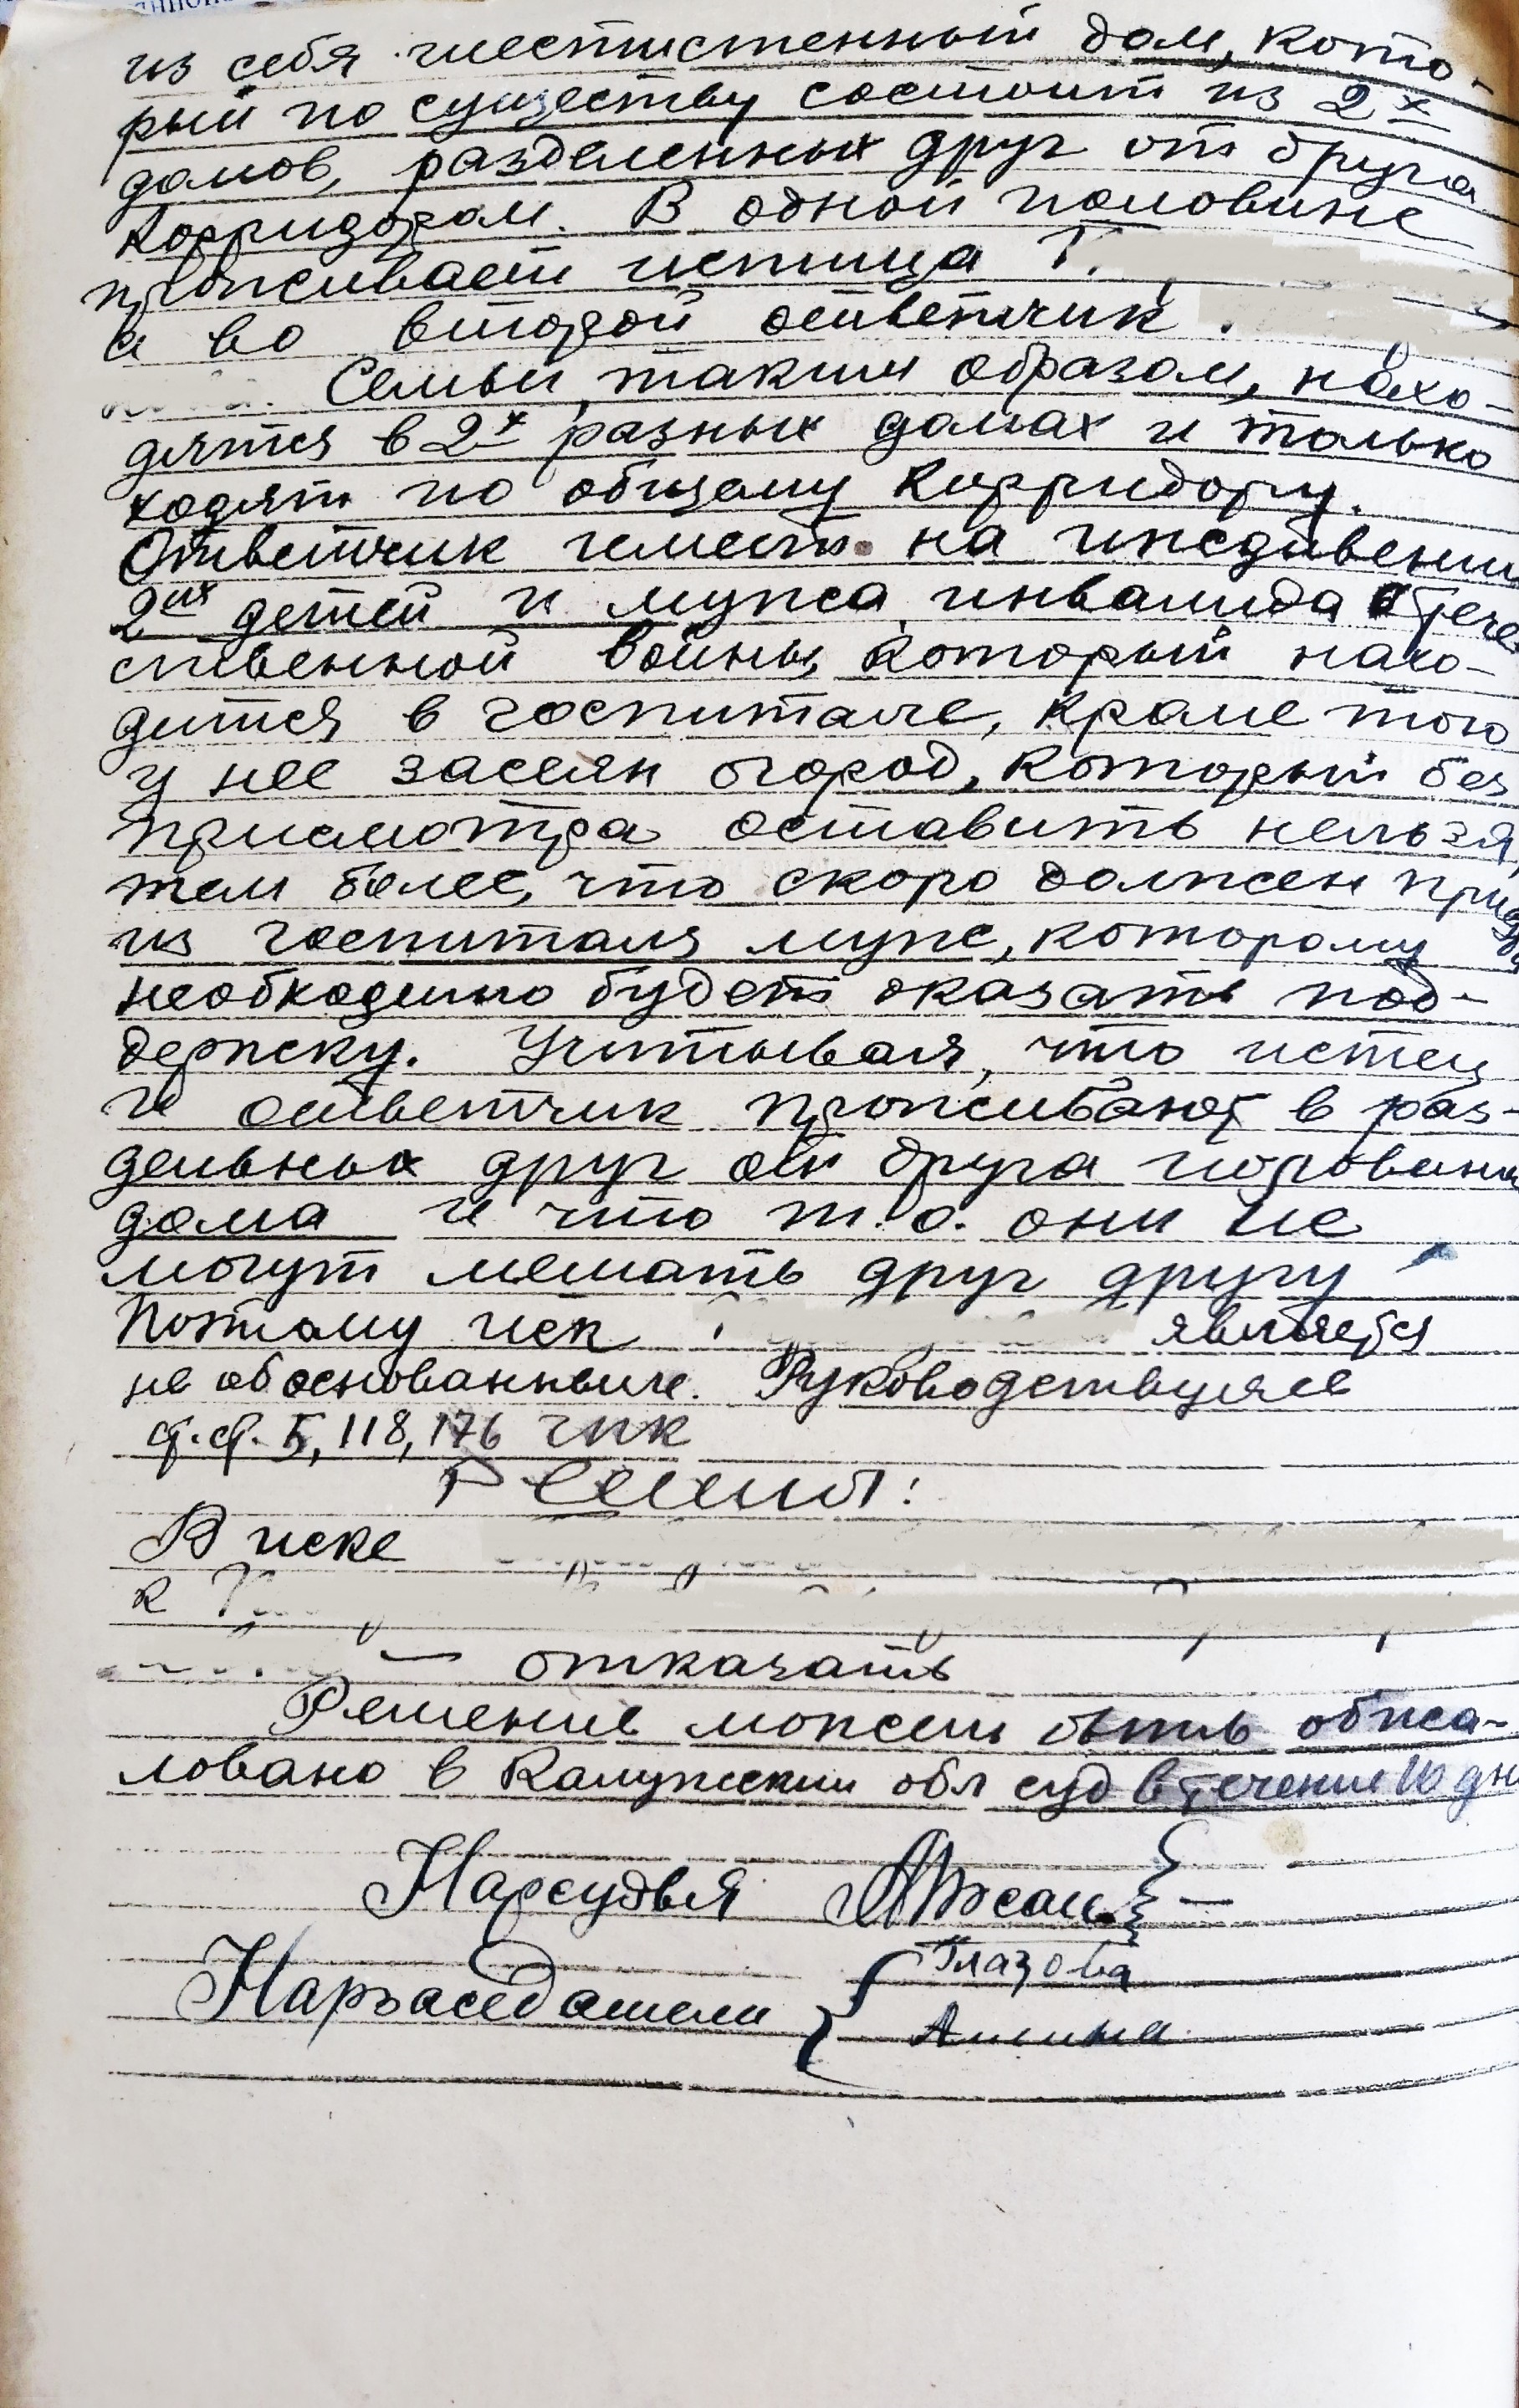 из себя шестистенный дом, кото-
рый по существу состоит из 2х
домов, разделенных друг от друга
корридором. В одной половине
проживает истица Г.
а во второй ответчик.
Семьи, таким образом, нахо-
дятся в 2х разных домах и только
ходят по общему корридору.
Ответчик имеет на иждивении
2их детей и мужа инвалида отече
ственной войны, который нахо-
дится в госпитале, кроме того
у нее засеян огород, который без
присмотра оставить нельзя,
тем более, что скоро должен придти
из госпиталя муж, которому
необходимо будет оказать под-
держку. Учитывая, что истец
и ответчик проживают в раз-
дельных друг от друга половинах
дома и что т.о. они не
могут мешать друг другу
Поэтому иск является
не обоснованным. Руководствуясь
ст.ст. 5, 118, 176 ГПК
Решил:
В иске
к
отказать
Решение может быть обжа-
ловано в Калужский обл суд в течение 10 дн
Нарсудья
Нарзаседатели Глазова